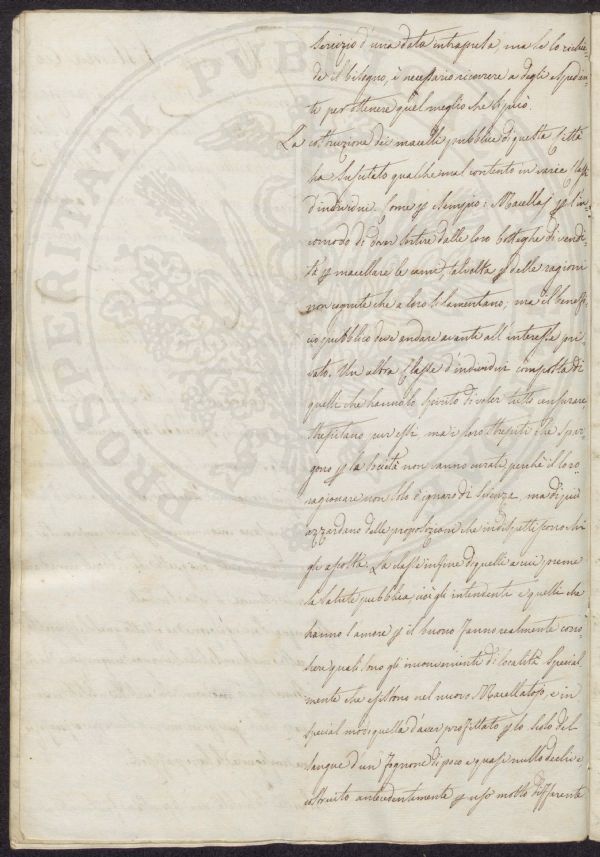 servizio d'una data intrapresa ma se lo richie-
de il bisogno, è necessario ricorrere a degli espedien-
te per ottenere quel meglio che si può.
La costruzione dei macelli pubblici di questa Città
ha suscitato qualche mal contento in varie Classi
d'individui. Come p esempio: Macellaj p l'in-
comodo di dover sortire dalle loro botteghe di vendi-
ta p macellare le carni, talvolta p delle ragioni
non cognite che a loro si lamentano; ma il benefi-
cio pubblico deve andare avante all'interesse pri-
vato. Un altra Classe d'individui composta di
quelli che hanno lo spirito di voler tutto censurare,
strepitano pur essi ma i loro strepiti che spar-
gono p la Società non vanno curati perchè il loro
ragionare non solo è ignaro di Scienze, ma di più
azzardano delle proposizioni che indispettiscono chi
gli ascolta. La classe infine di quelli a cui preme
la salute pubblica, cioè gli intendente e quelli che
hanno l'amore p il buono fanno realmente cono-
scere quali sono gli inconveniente di località special-
mente che esistono nel nuovo Macellatojo, e in
special modo quella d'aver profittato p lo scolo del
sangue d'un fognone di poco e quasi nullo declive,
costruito antecedentemente p uso molto differente
PROSPERITATI PUBLICAE